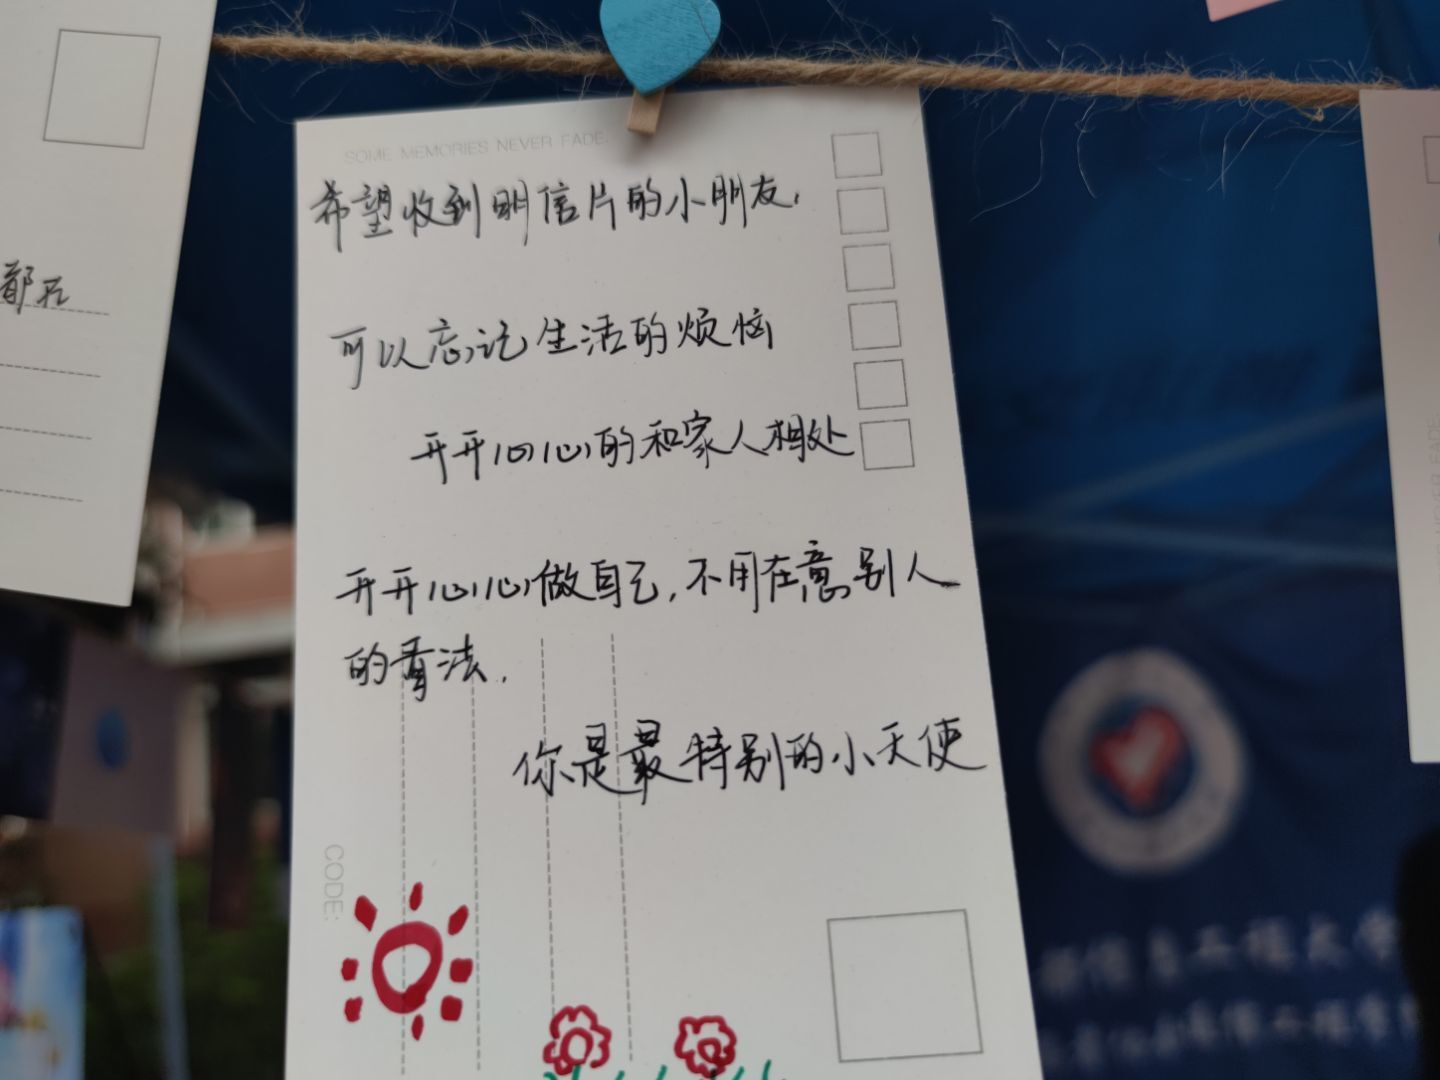 SOME MEMORIES NEVER FADE.
希望收到明信片的小朋友,
可以忘记生活的烦恼
开开心心的和家人相处
开开心心做自己,不用在意别人
的看法.
你是最特别的小天使
CODE:
都在